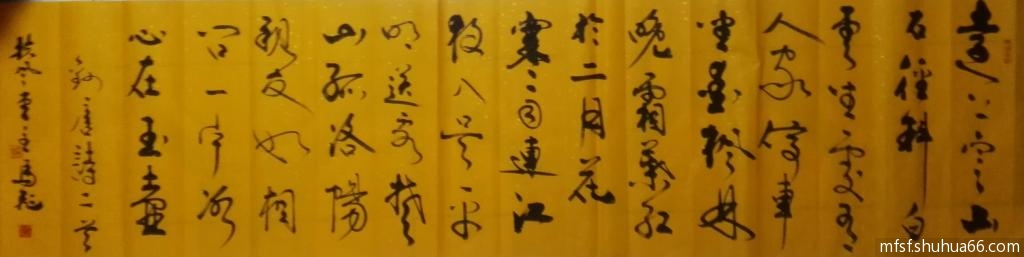 遠上寒山
石徑斜白
雲生處有
人家停車
坐愛楓林
晚霜葉紅
於二月花
寒雨連江
夜入吳平
明送客楚
山孤洛陽
親友如相
問一片冰
心在玉壺
錄唐詩二首
扶風堂主
mfsf.shuhua66.com